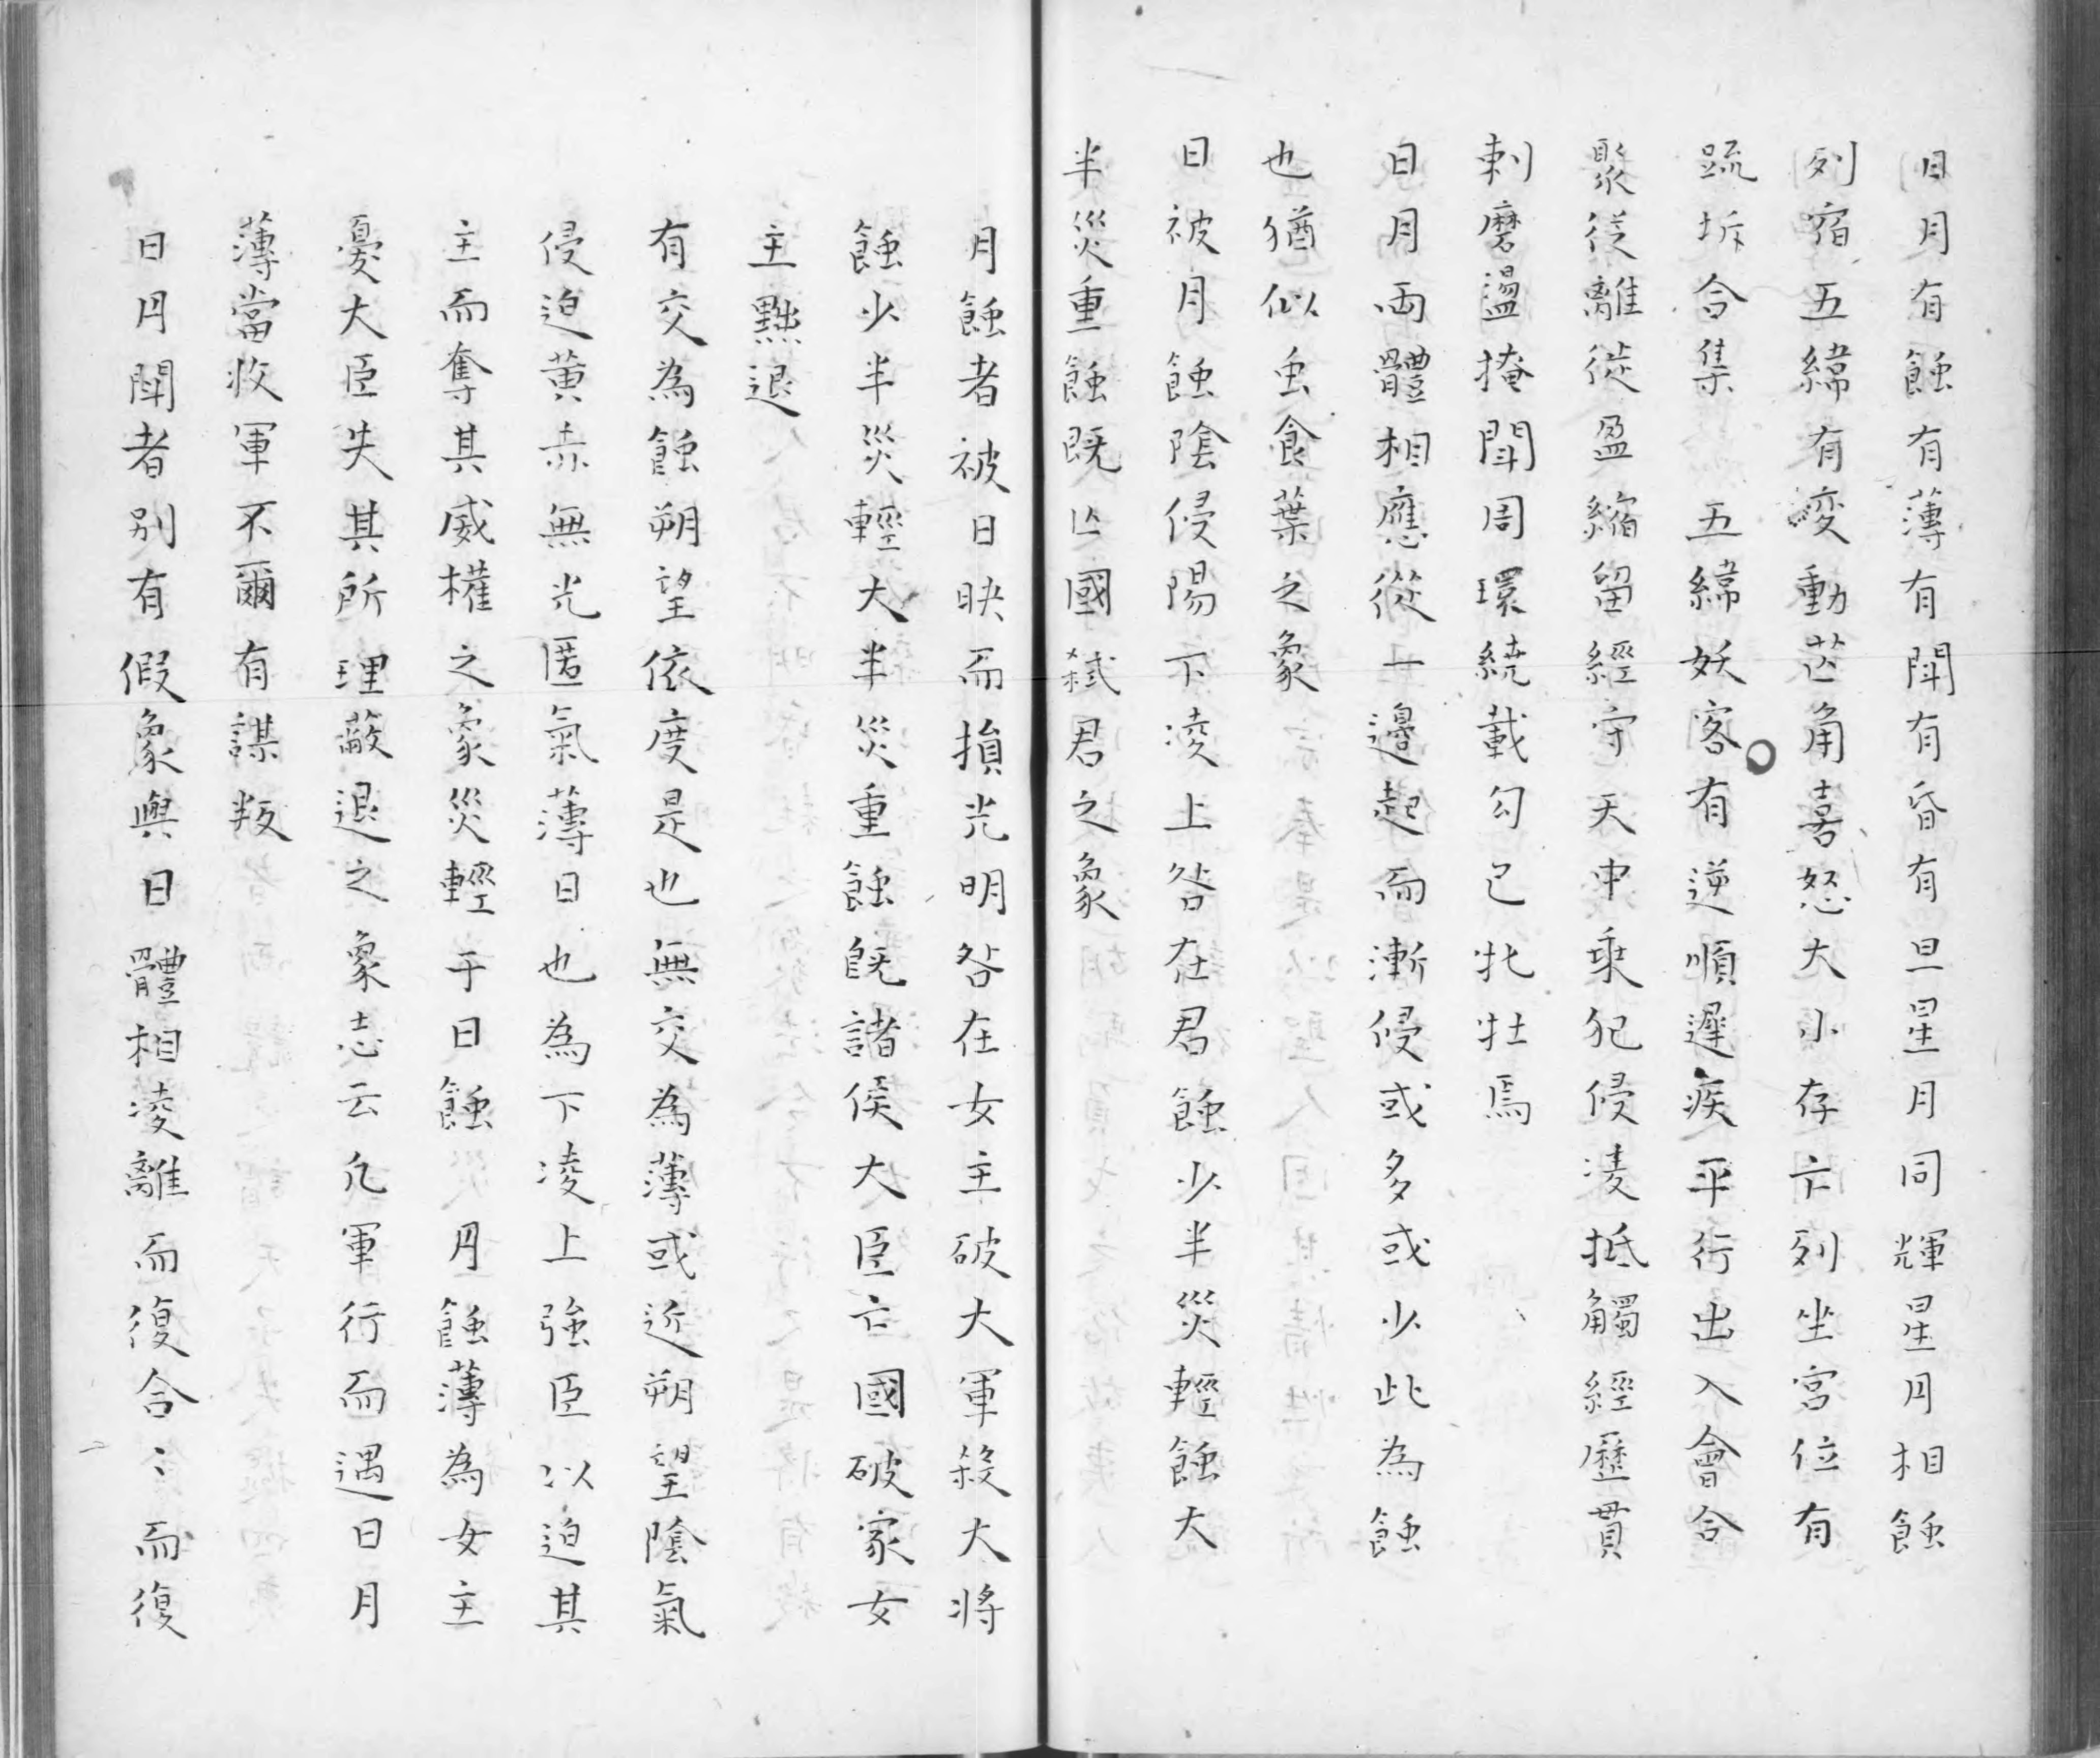 日月有蝕有薄有鬪有昏有旦星月同輝星月相蝕
列宿五緯有變動芒角喜怒大小存亡列坐宮位有
踈坼合集　五緯妖客有逆順遲疾平行出入會合
聚從離徙盈縮留經守天中乘犯侵凌抵觸經歷貫
刺磨盪掩鬪周環繞載勾已牝牡焉
日月兩體相應從一邊起而漸侵或多或少此為蝕
也猶似虫食葉之象
日被月蝕陰侵陽下凌上咎在君蝕少半災輕蝕大
半災重蝕既亡國弒君之象
月蝕者被日映而損光明咎在女主破大軍殺大將
蝕少半災輕大半災重蝕既諸侯大臣亡國破家女
主黜退
有交為蝕朔望依度是也無交為薄或近朔望陰氣
侵迫黄赤無光匿氣薄日也為下凌上強臣以迫其
主而奪其威權之象災輕于日蝕　月蝕薄為女主
憂大臣失其所理蔽退之象志云凢軍行而遇日月
薄當收軍不爾有謀叛
日月鬪者別有假象與日體相凌離而復合〻而復